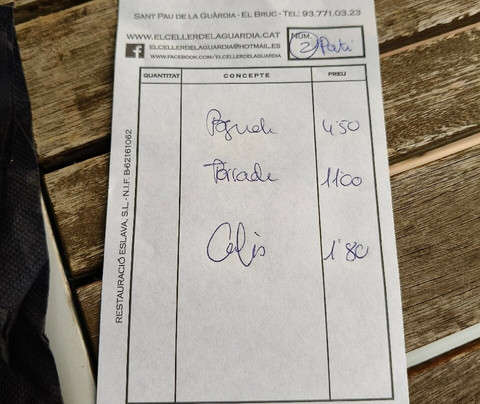 SANT PAU DE LA GUÀRDIA - EL BRUC - TEL: 93.771.03.23
WWW.ELCELLERDELAGUARDIA.CAT
ELCELLERDELAGUARDIA@HOTMAIL.ES
WWW.FACEBOOK.COM/ELCELLERDELAGUARDIA
NÚM.
2 Pati
QUANTITAT CONCEPTE PREU
4'50
Torrade 11'00
1'80
RESTAURACIÓ ESLAVA, S.L.- N.I.F. B-62161062